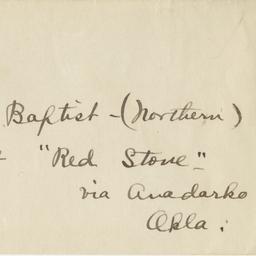 Baptist - (Northern)
"Red Stone"
via Anadarko
Okla: